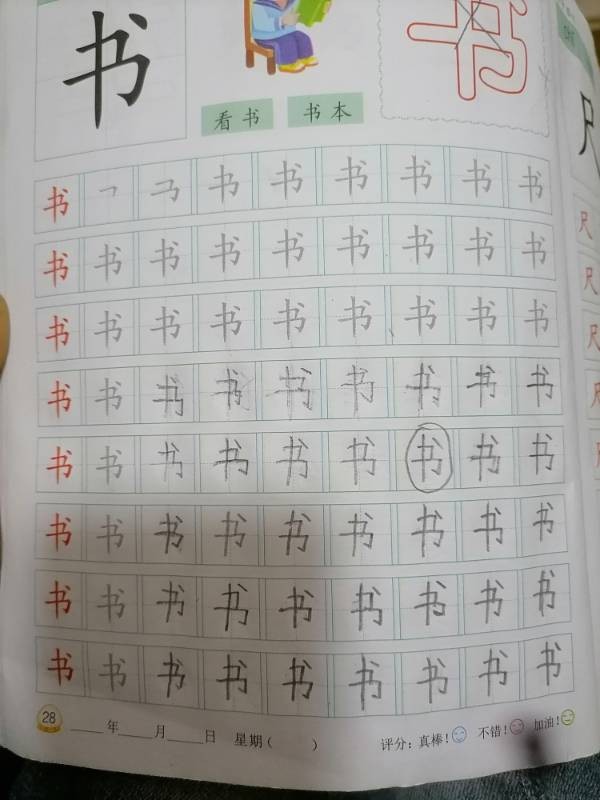 书
书
看书 书本
书 ㇕ 书 书 书 书 书 书
书 书 书 书 书 书 书 书 书
书 书 书 书 书 书 书 书 书
书 书 书 书 书 书 书 书 书
书 书 书 书 书 书 书 书 书
书 书 书 书 书 书 书 书 书
书 书 书 书 书 书 书 书 书
书 书 书 书 书 书 书 书 书
28 ____年____月____日 星期( ) 评分:真棒! 不错! 加油!
尺
尺
尺
尺